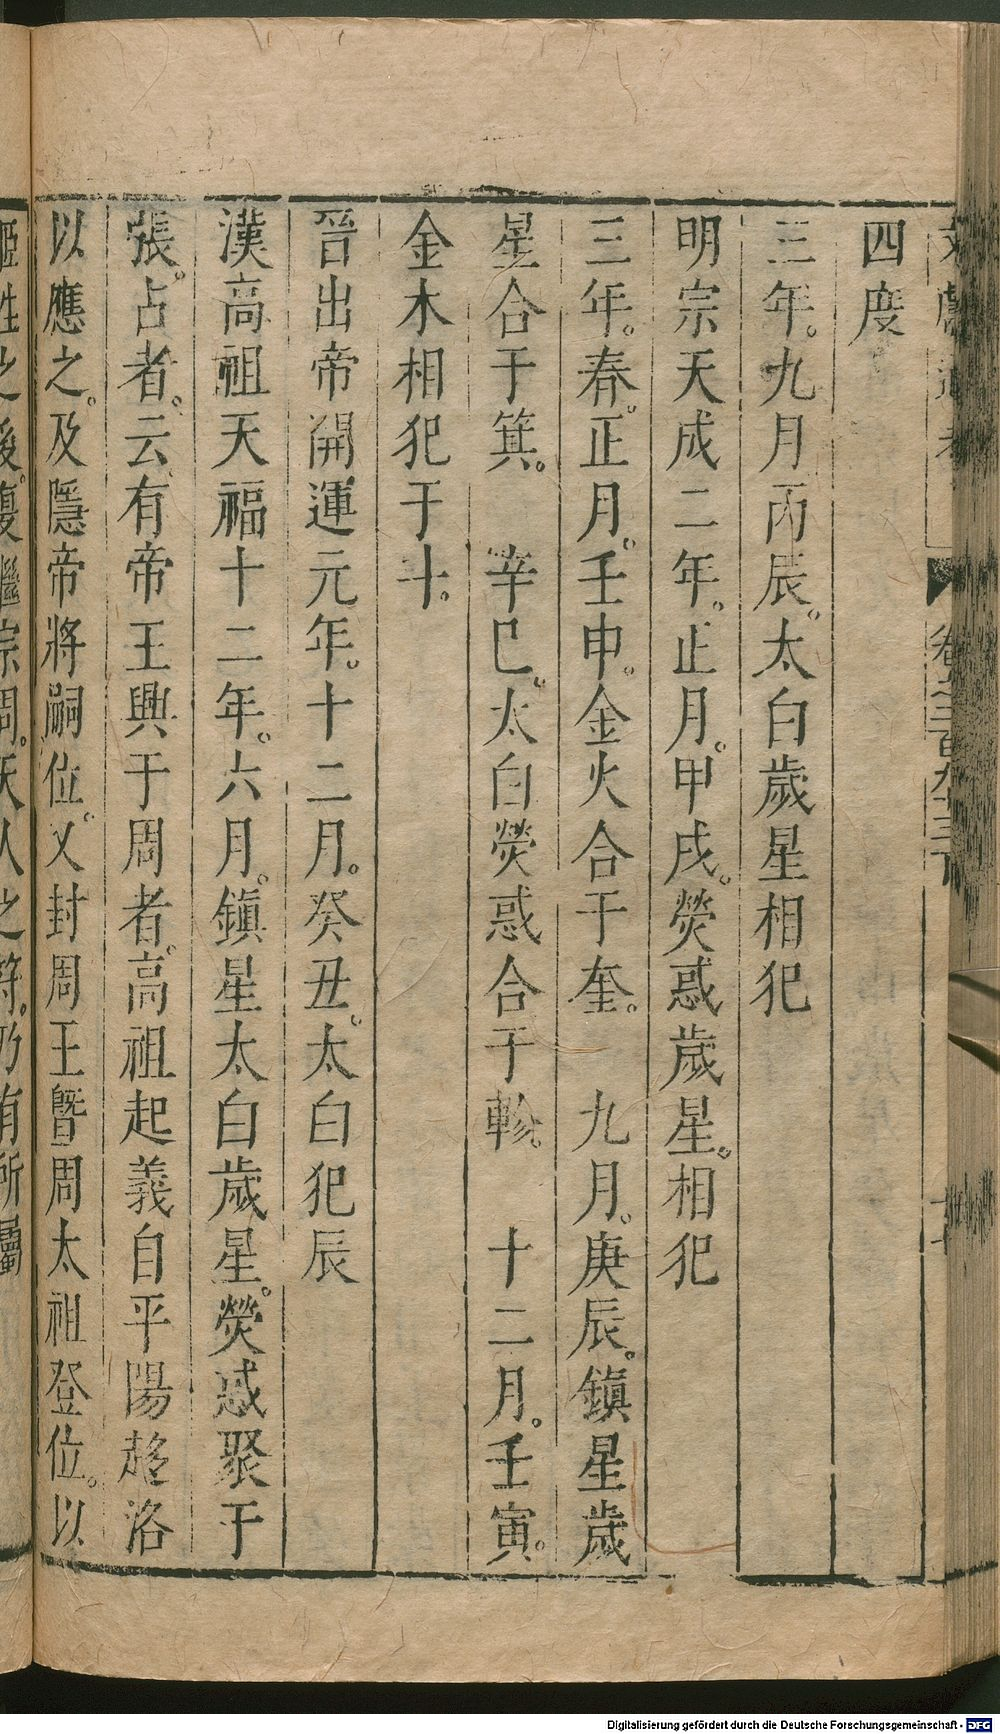 四度
三年。九月丙辰。太白歲星相犯
明宗天成二年。正月。甲戌。熒惑歲星。相犯
三年。春。正月。壬申。金火合于奎。　九月。庚辰。鎮星歲
星合于箕。　辛巳。太白熒惑合于軫。　十二月。壬寅。
金木相犯于斗。
晉出帝開運元年。十二月。癸丑。太白犯辰
漢高祖天福十二年。六月。鎮星太白歲星。熒惑聚于
張。占者。云。有帝王興于周者。高祖起義自平陽趍洛
以應之。及隱帝將嗣位。又封周王曁周太祖登位。以
姬姓之後。復繼宗周。天人之符。乃有所屬
Digitalisierung gefördert durch die Deutsche Forschungsgemeinschaft - DFG